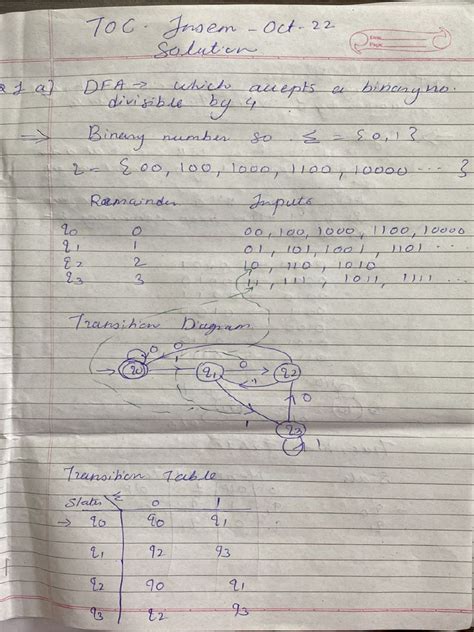 TOC. Insem - Oct-22
Solution
Date
Page
Q 1 a) DFA → which accepts a binary no.
divisible by 4
⇒ Binary number so Σ = {0,1}
L = {00, 100, 1000, 1100, 10000 ---- }
Remainder Inputs
q0 0 00, 100, 1000, 1100, 10000
q1 1 01, 101, 1001, 1101 ..
q2 2 10, 110, 1010
q3 3 11, 111, 1011, 1111 ...
Transition Diagram
0 0
q0 1 q1 0 q2
1
1 0
q3 1
Transition Table
States Σ 0 1
→ q0 q0 q1
q1 q2 q3
q2 q0 q1
q3 q2 q3